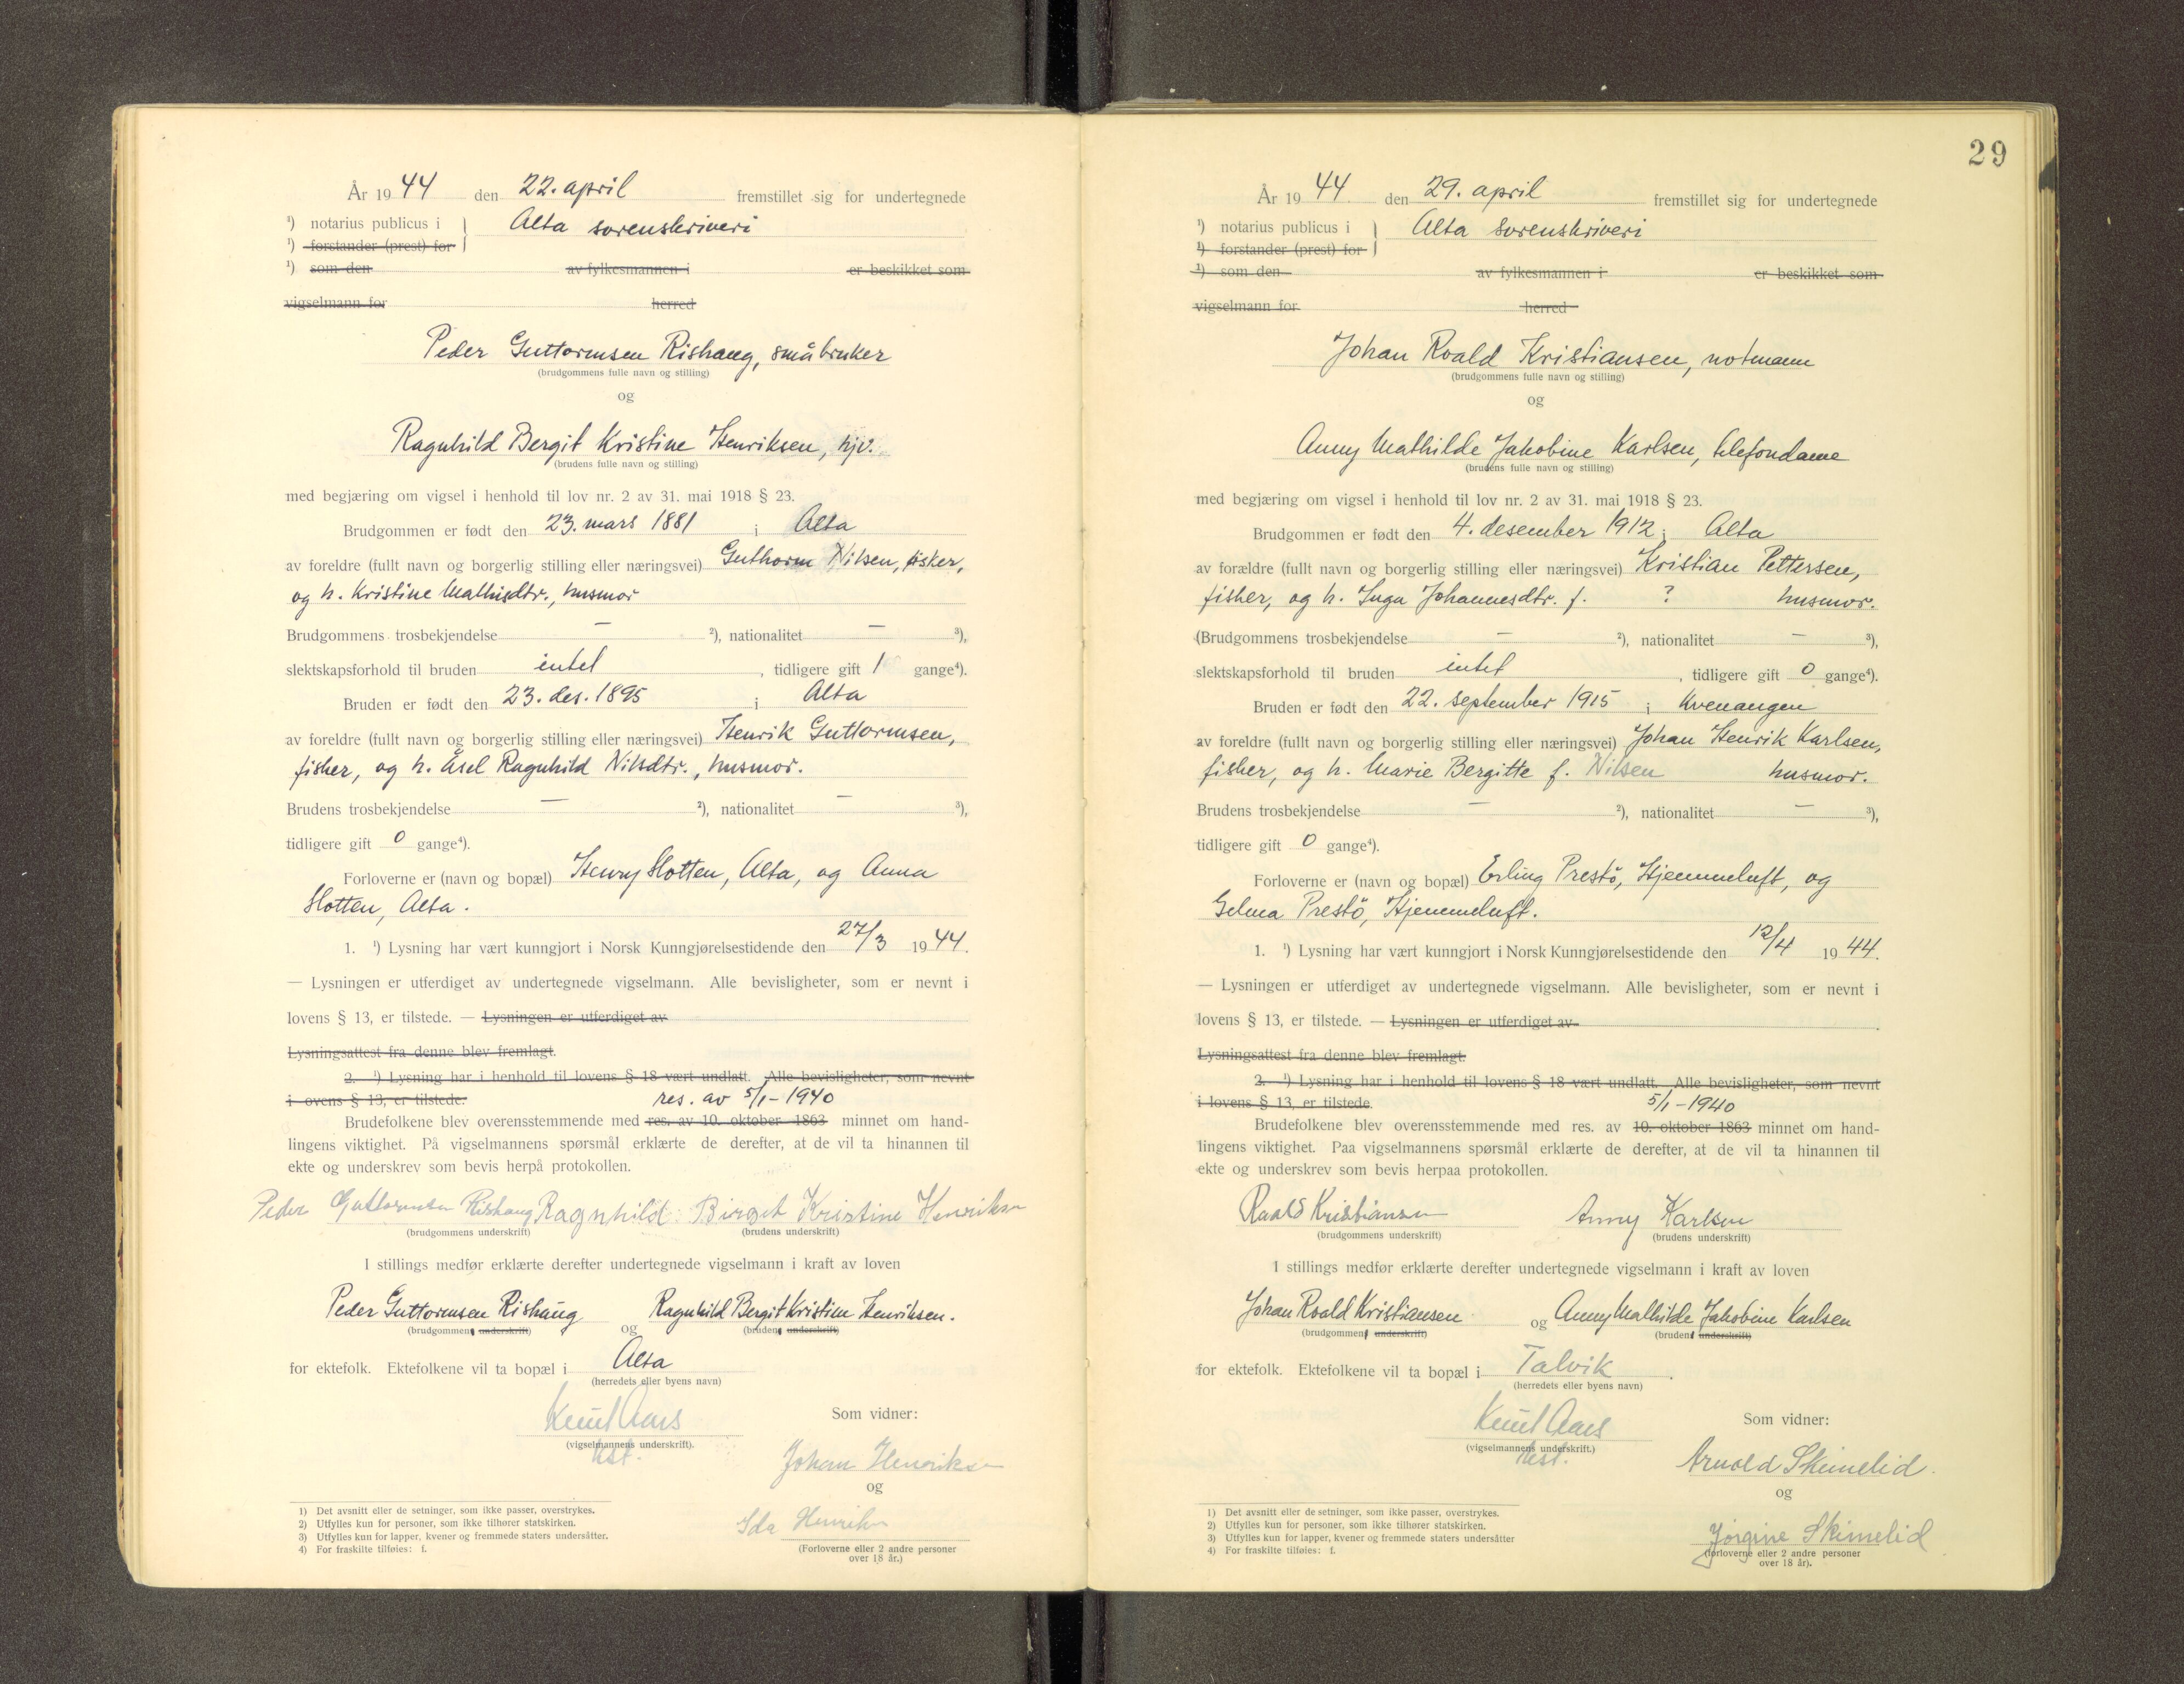 År 1944 den 22. april fremstillet sig for undertegnede
¹) notarius publicus i } Alta sorenskriveri
¹) forstander (prest) for
¹) som den av fylkesmannen i er beskikket som
vigselmann for herred
Peder Guttormsen Rishaug, småbruker
(brudgommens fulle navn og stilling)
og
Ragnhild Bergit Kristine Henriksen, hjv.
(brudens fulle navn og stilling)
med begjæring om vigsel i henhold til lov nr. 2 av 31. mai 1918 § 23.
Brudgommen er født den 23. mars 1881 i Alta
av foreldre (fullt navn og borgerlig stilling eller næringsvei) Guthorm Nilsen, fisker,
og h. Kristine Mathisdtr., husmor
Brudgommens trosbekjendelse — ²), nationalitet — ³),
slektskapsforhold til bruden intet, tidligere gift 1 gange⁴).
Bruden er født den 23. des. 1895 i Alta
av foreldre (fullt navn og borgerlig stilling eller næringsvei) Henrik Guttormsen,
fisker, og h. Ásel Ragnhild Nilsdtr., husmor.
Brudens trosbekjendelse — ²), nationalitet — ³),
tidligere gift 0 gange⁴).
Forloverne er (navn og bopæl) Henry Holten, Alta, og Anna
Holten, Alta.
1. ¹) Lysning har vært kunngjort i Norsk Kunngjørelsestidende den 27/3 1944.
— Lysningen er utferdiget av undertegnede vigselmann. Alle bevisligheter, som er nevnt i
lovens § 13, er tilstede. — Lysningen er utferdiget av
Lysningsattest fra denne blev fremlagt.
2. ¹) Lysning har i henhold til lovens § 18 vært undlatt. Alle bevisligheter, som nevnt
i ovens § 13, er tilstede. res. av 5/1-1940
Brudefolkene blev overensstemmende med res. av 10. oktober 1863 minnet om hand-
lingens viktighet. På vigselmannens spørsmål erklærte de derefter, at de vil ta hinannen til
ekte og underskrev som bevis herpå protokollen.
Peder Guttormsen Rishaug Ragnhild Birget Kristine Henriksen
(brudgommens underskrift) (brudens underskrift)
I stillings medfør erklærte derefter undertegnede vigselmann i kraft av loven
Peder Guttormsen Rishaug og Ragnhild Bergit Kristine Henriksen.
(brudgommens underskrift) (brudens underskrift)
for ektefolk. Ektefolkene vil ta bopæl i Alta
(herredets eller byens navn)
Knut Aars Som vidner:
(vigselmannens underskrift).
kst.
Johan Henriksen
og
Ida Henriksen
(Forloverne eller 2 andre personer
over 18 år.)
1) Det avsnitt eller de setninger, som ikke passer, overstrykes.
2) Utfylles kun for personer, som ikke tilhører statskirken.
3) Utfylles kun for lapper, kvener og fremmede staters undersåtter.
4) For fraskilte tilføies: f.
29
År 1944 den 29. april fremstillet sig for undertegnede
¹) notarius publicus i } Alta sorenskriveri
¹) forstander (prest) for
¹) som den av fylkesmannen i er beskikket som
vigselmann for herred
Johan Roald Kristiansen, notmann
(brudgommens fulle navn og stilling)
og
Anny Mathilde Jakobine Karlsen, telefondame
(brudens fulle navn og stilling)
med begjæring om vigsel i henhold til lov nr. 2 av 31. mai 1918 § 23.
Brudgommen er født den 4. desember 1912 i Alta
av forældre (fullt navn og borgerlig stilling eller næringsvei) Kristian Pettersen,
fisker, og h. Inga Johannesdtr. f. ? husmor.
(Brudgommens trosbekjendelse — ²), nationalitet — ³),
slektskapsforhold til bruden intet, tidligere gift 0 gange⁴).
Bruden er født den 22. september 1915 i Kvenangen
av foreldre (fullt navn og borgerlig stilling eller næringsvei) Johan Henrik Karlsen,
fisker, og h. Marie Bergitte f. Nilsen husmor.
Brudens trosbekjendelse — ²), nationalitet — ³),
tidligere gift 0 gange⁴).
Forloverne er (navn og bopæl) Erling Prestö, Hjemmeluft, og
Gelma Prestö, Hjemmeluft.
1. ¹) Lysning har vært kunngjort i Norsk Kunngjørelsestidende den 12/4 1944.
— Lysningen er utferdiget av undertegnede vigselmann. Alle bevisligheter, som er nevnt i
lovens § 13, er tilstede. — Lysningen er utferdiget av
Lysningsattest fra denne blev fremlagt.
2. ¹) Lysning har i henhold til lovens § 18 vært undlatt. Alle bevisligheter, som nevnt
i lovens § 13, er tilstede. 5/1-1940
Brudefolkene blev overensstemmende med res. av 10. oktober 1863 minnet om hand-
lingens viktighet. Paa vigselmannens spørsmål erklærte de derefter, at de vil ta hinannen til
ekte og underskrev som bevis herpaa protokollen.
Roald Kristiansen Anny Karlsen
(brudgommens underskrift) (brudens underskrift)
I stillings medfør erklærte derefter undertegnede vigselmann i kraft av loven
Johan Roald Kristiansen og Anny Mathilde Jakobine Karlsen
(brudgommens underskrift) (brudens underskrift)
for ektefolk. Ektefolkene vil ta bopæl i Talvik.
(herredets eller byens navn)
Knut Aars Som vidner:
(vigselmannens underskrift.)
kst.
Arnold Skimelid.
og
Jørgine Skimelid
(forloverne eller 2 andre personer
over 18 år).
1) Det avsnitt eller de setninger, som ikke passer, overstrykes.
2) Utfylles kun for personer, som ikke tilhører statskirken.
3) Utfylles kun for lapper, kvener og fremmede staters undersåtter
4) For fraskilte tilføies: f.